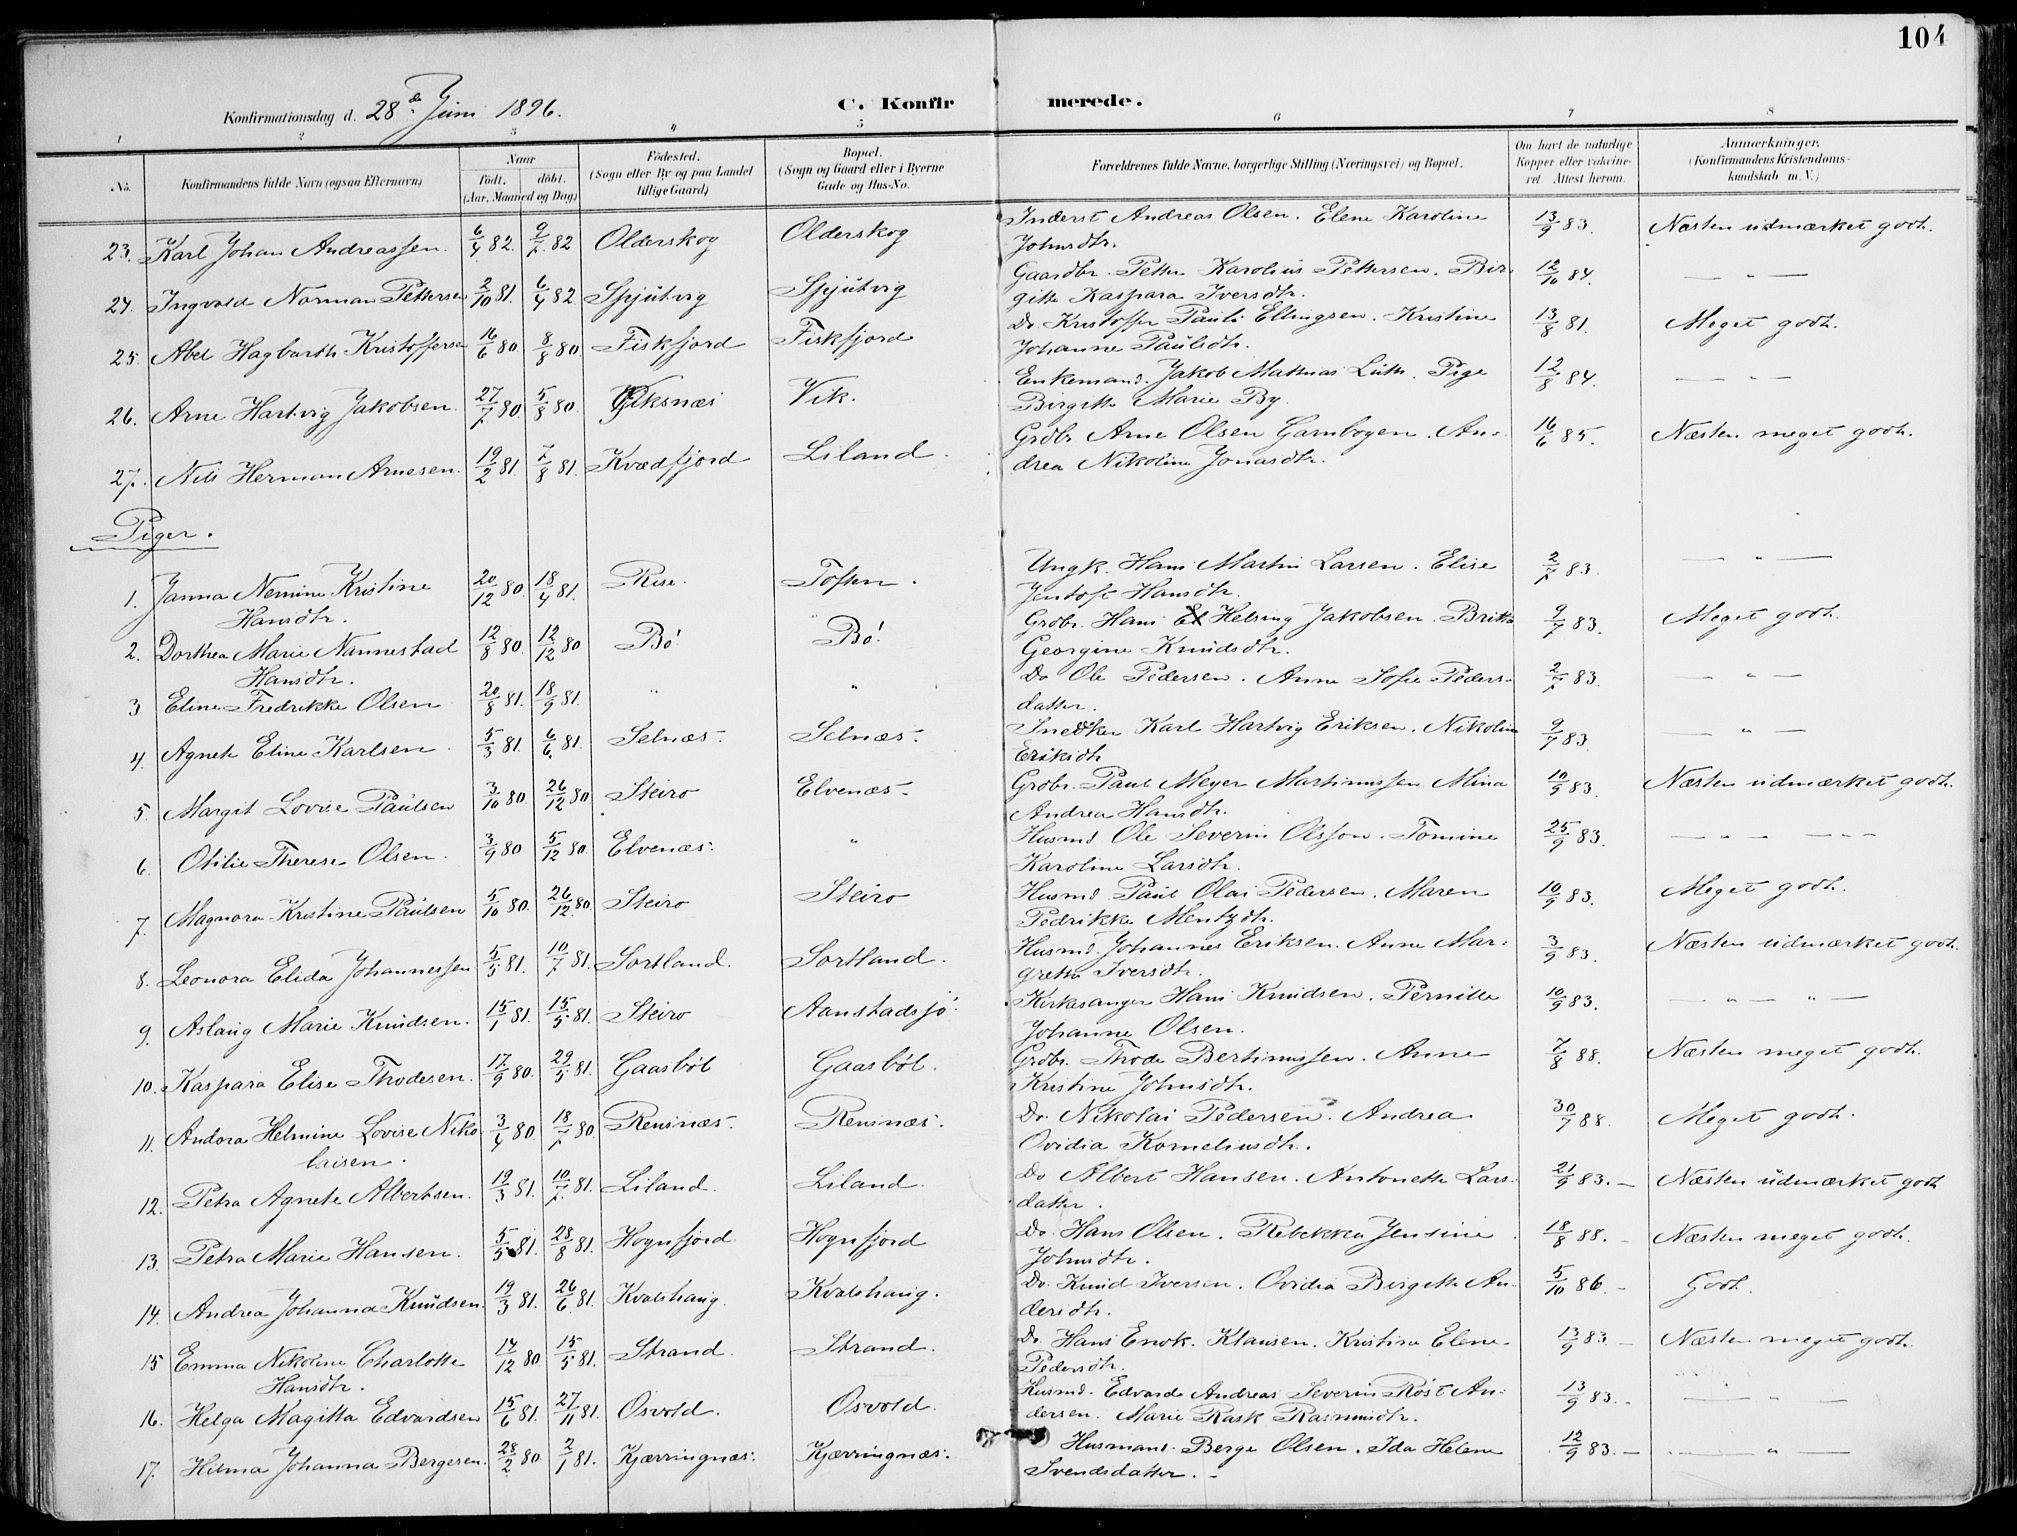 104
Konfirmationsdag d. 28de Juni 1896.
C. Konfir merede.
1 2 3 4 5 6 7 8
No. Konfirmandens fulde Navn (ogsaa Efternavn) Naar Født. døbt. (Aar, Maaned og Dag) Fødested. (Sogn eller By og paa Landet tillige Gaard) Bopæl. (Sogn og Gaard eller i Byerne Gade og Hus-No. Forældrenes fulde Navne, borgerlige Stilling (Næringsvei) og Bopæl. Om havt de naturlige Kopper eller vakcineret Attest herom. Anmærkninger. (Konfirmandens Kristendomskundskab m. V.)
23. Karl Johan Andreassen. 6/4 82. 9/7 82 Olderskog Olderskog Inderst Andreas Olsen. Elene Karoline 13/9 83. Næsten udmærket godt.
Johnsdtr.
24. Ingvald Norman Pettersen 2/10 81. 6/4 82 Spjutvig Spjutvig Gaardbr. Petter Karolius Pettersen. Bir- 12/10 84. — " —
gitte Kaspara Iversdtr.
25. Abel Hagbarth Kristoffersen 16/6 80 8/8 80 Fiskfjord Fiskfjord Do. Kristoffer Pauli Ellingsen. Kristine 13/8 81. Meget godt.
Johanne Paulsdtr.
26. Arne Hartvig Jakobsen. 27/7 80 5/8 80. Viksnæs Vik. Enkemand. Jakob Mathias Luth. Pige 12/8 84. — " —
Birgitte Marie By.
27. Nils Herman Arnesen. 19/2 81. 7/8 81. Kvædfjord Liland. Grdbr. Arne Olsen Gambogen. An- 16/6 85. Næsten meget godt.
drea Nikoline Jonasdtr.
Piger.
1. Janna Nemine Kristine 20/12 80 18/4 81. Rise. Toften. Ungk. Hans Martin Larsen. Elise 2/7 83. — " —
Hansdtr. Jentoft Hansdtr.
2. Dorthea Marie Nannestad 12/8 80. 12/12 80 Bø. Bø. Grdbr. Hans El Helsing Jakobsen. Britha 9/7 83. Meget godt.
Hansdtr. Georgine Knudsdtr.
3 Eline Fredrikke Olsen 20/8 81. 18/9 81. " " Do Ole Pedersen. Anne Sofie Peders- 2/7 83. — " —
datter.
4. Agnete Eline Karlsen. 5/3 81. 6/6. 81. Selnæs. Selnæs. Snedker Karl Hartvig Eriksen. Nikoline 9/7 83. — " —
Eriksdtr
5. Margit Lovise Paulsen 3/10 80. 26/12 80. Steiro Elvenæs. Grdbr. Paul Meyer Martinussen. Mina 10/9 83. Næsten udmærket godt.
Andrea Hansdtr.
6. Otilie Therese Olsen. 3/9 80 5/12 80. Elvenæs. " Husmd Ole Severin Olsson. Tomine 25/9 83. — " — — —
Karoline Larsdtr.
7. Magnora Kristine Paulsen 5/10 80. 26/12. 80. Steiro Steiro Husmd. Paul Olai Pedersen. Maren 10/9 83. Meget godt.
Pedrikke Mentzdtr.
8. Leonora Elida Johannessen 5/5 81. 10/7 81. Sortland. Sortland. Husmd. Johannes Eriksen. Anne Mar- 3/9 83. Næsten udmærket godt.
grethe Iversdtr.
9. Aslaug Marie Knudsen. 15/1 81. 15/5 81. Steiro Aanstadsjø. Kirkesanger Hans Knudsen. Pernille 10/9 83. — " — " —
Johanne Olsen.
10. Kaspara Elise Thodesen. 17/9 80. 29/5 81. Gaasbøl Gaasbøl. Grdbr. Thode Bertinussen. Anne 7/8 88. Næsten meget godt.
Kristine Johnsdtr.
11. Andora Helmine Lovise Niko- 3/4 80. 18/7 80 Rensnæs. Rensnæs. Do. Nikolai Pedersen. Andrea 30/7 88. Meget godt.
laisen. Ovidia Korneliusdtr.
12. Petra Agnete Albertsen. 19/3 81. 10/7 81. Liland. Liland. Do Albert Hansen. Antonette Lars- 21/9 83. — Næsten udmærket godt
datter.
13. Petra Marie Hansen. 5/5 81. 28/8 81. Hognfjord Hognfjord Do. Hans Olsen. Rebekka Jensine 18/8 88. — Næsten meget godt.
Johnsdtr.
14. Andrea Johanna Knudsen. 19/3 81. 26/6 81. Kvalshaug. Kvalshaug. Do. Knud Iversen. Ovidia Birgitte An- 5/10 86. — Godt.
dersdtr.
15 Emma Nikoline Charlotte 14/12 80 15/5 81. Strand. Strand. Do. Hans Enok. Klausen. Kristine Elene 13/9 83. — Næsten meget godt.
Hansdtr. Pedersdtr.
16. Helga Magitta Edvardsen 15/6 81. 27/11 81. Osvold. Osvold. Husmd. Edvard Andreas Severin Røst An- 13/9 83. — — " —
dersen. Marie Rask Rasmusdtr.
17. Hilma Johanna Bergesen. 28/2 80. 2/1 81. Kjærringnæs. Kjærringnæs. Husmand. Berge Olsen. Ida Helene 12/9 83. — — " —
Svendsdatter. —